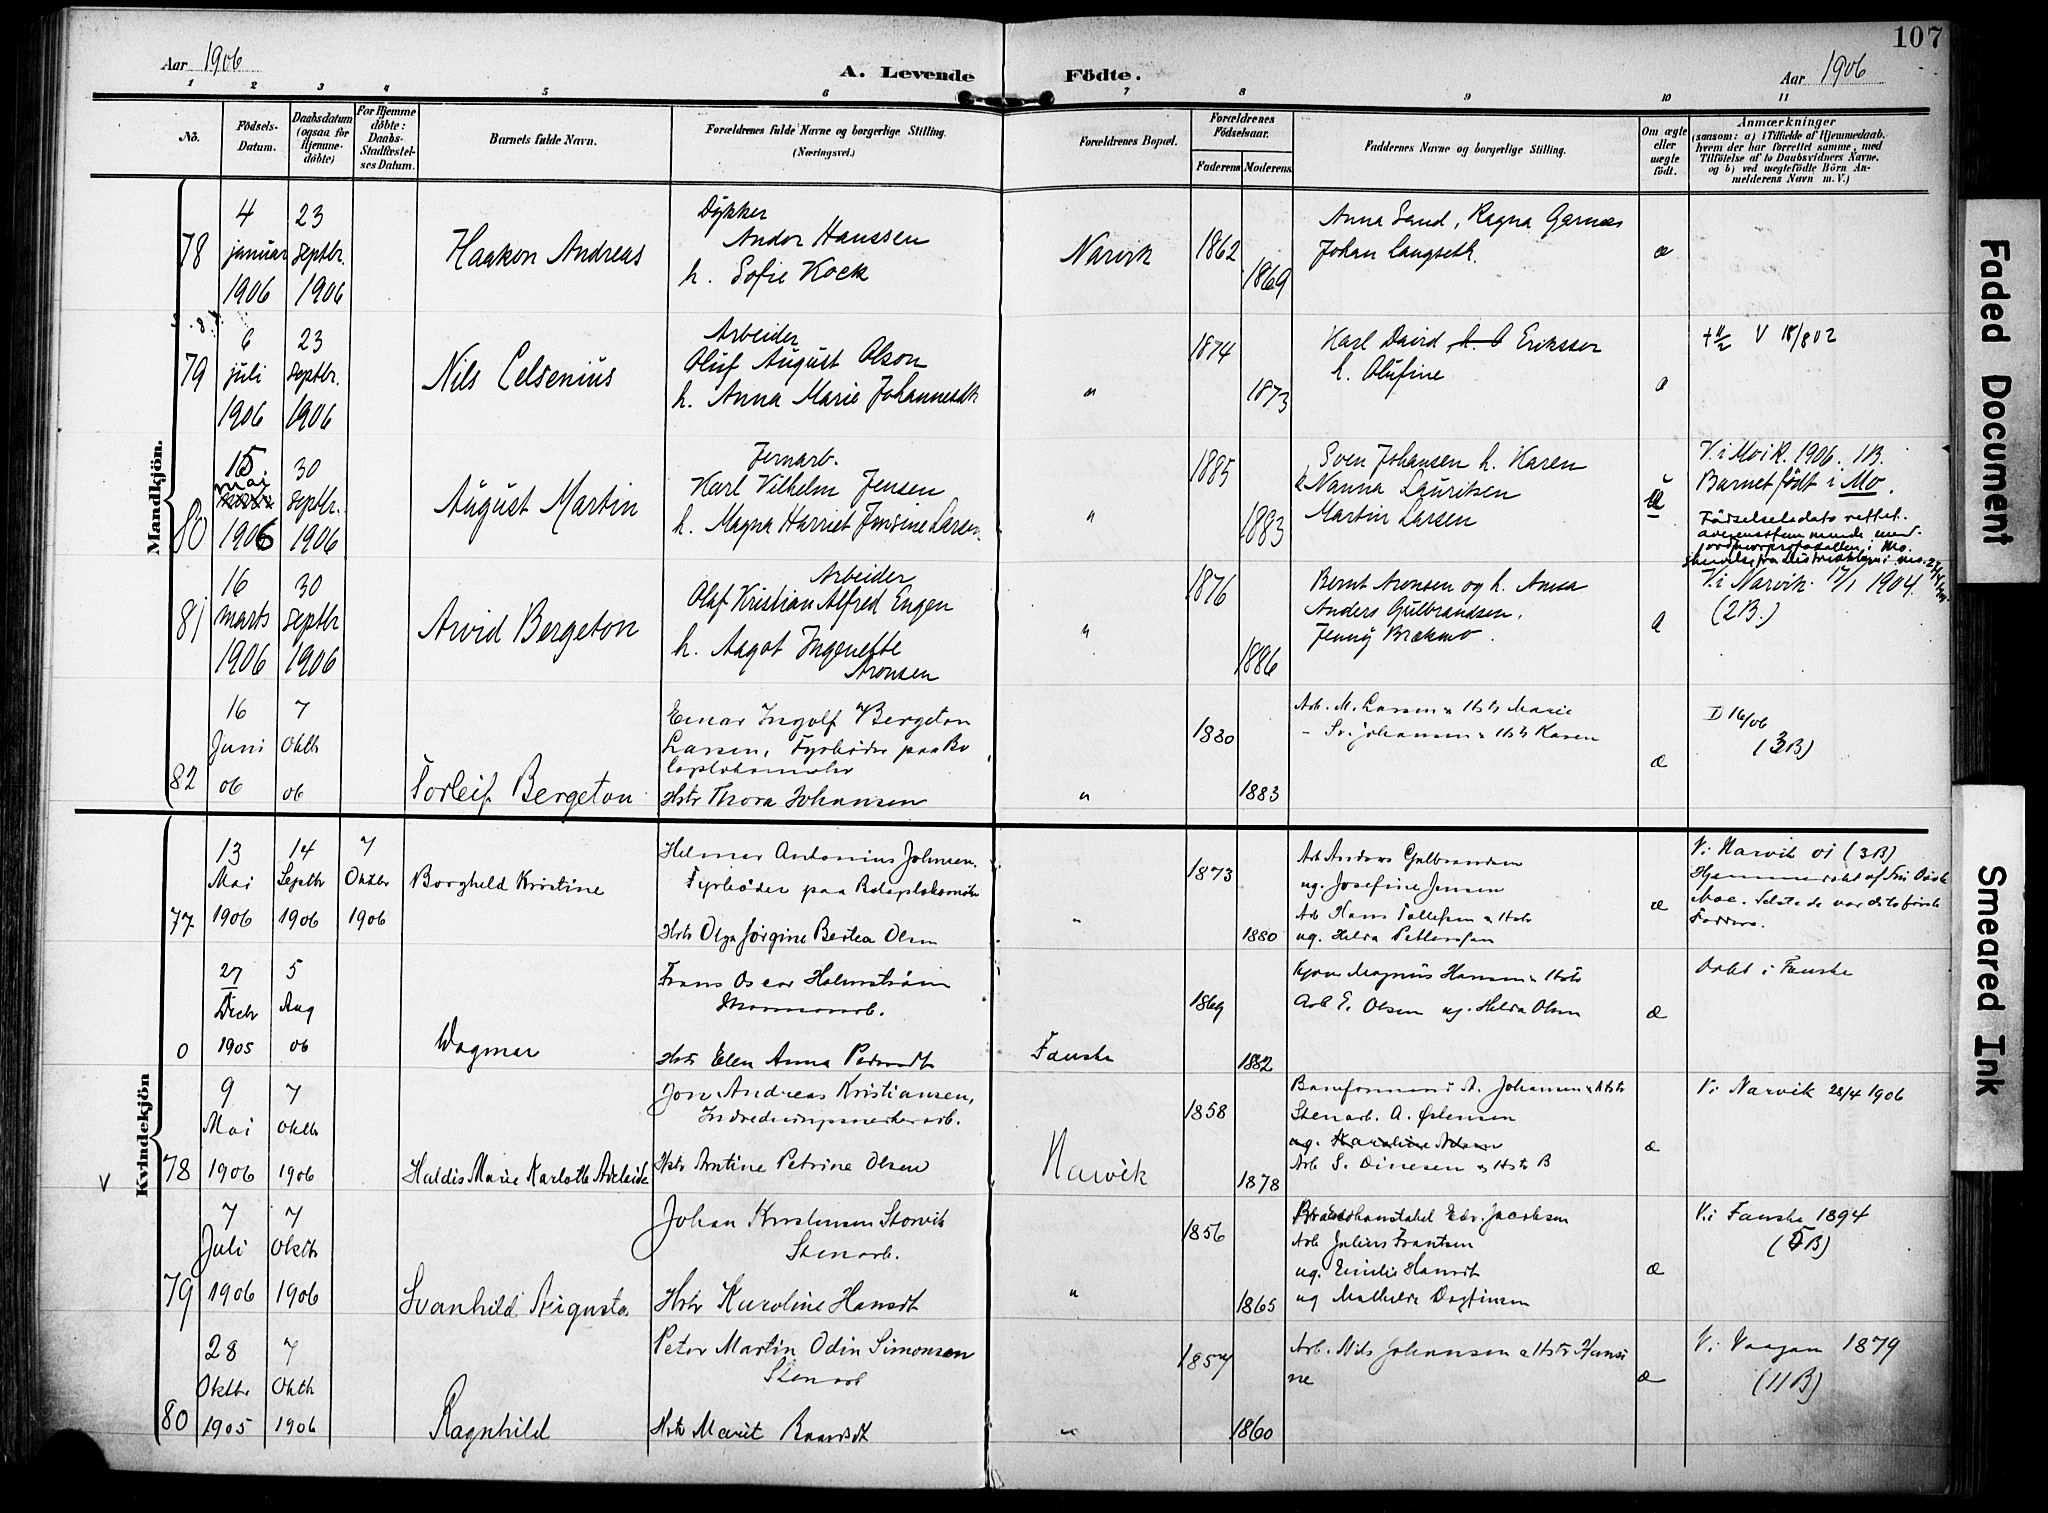 107
Aar 1906
A. Levende Födte.
Aar 1906
1 2 3 4 5 6 7 8 9 10 11
No.
Födsels-Datum.
Daabsdatum (ogsaa for Hjemme-döbte)
For Hjemme döbte: Daabs-Stadfæstel-ses Datum.
Barnets fulde Navn.
Forældrenes fulde Navne og borgerlige Stilling.
(Næringsvei.)
Forældrenes Bopæl.
Forældrenes Födselsaar.
Faderens Moderens
Faddernes Navne og borgerlige Stilling.
Om ægte eller uægte födt.
Anmærkninger
(saasom: a) i Tilfælde af Hjemmedaab.
hvem der har forrettet samme, med
Tilföielse af to Daabsvidners Navne.
og b) ved uægtefödte Börn An-
melderens Navn m. V.)
Mandkjön.
78
4 januar 1906
23 Septbr. 1906
Haakon Andreas
Dykker
Andor Hanssen
h. Sofie Kock
Narvik
1862
1869
Anna Sand, Ragna Garnæs
Johan Langseth.
æ
79
6 juli 1906
23 Septbr. 1906
Nils Celsenius
Arbeider
Oluf August Olson
h. Anna Marie Johannesdt
"
1874
1873
Karl David Eriksson
h. Olufine
V 18/8 02
80
15. mai 1906
30 Septbr. 1906
August Martin
Jernarb.
Karl Vilhelm Jensen
h. Magna Harriet Jensine Larsen
"
1885
1883
Sven Johansen h. Karen
Nanna Lauritsen
Martin Larsen
V. i Mvik. 1906. 1B.
Barnet födt i Mo.
Födselsdato rettet
81
16 marts 1906
30 Septbr 1906
Arvid Bergeton
Arbeider
Olaf Kristian Alfred Engen
h. Aagot Ingenette
Aronsen
"
1876
1886
Bernt Aronsen og h. Anna
Anders Gulbrandsen.
Jenny Brækmo.
V. i Narvik. 17/1 1904.
(2B.)
82
16 Juni 06
7 Oktb 06
Torleif Bergeton
Einar Ingolf Bergeton
Larsen, Fyrbøder paa Bo
Hstr Thora Johansen
"
1880
1883
Arb. M. Larsen & Hstr Marie
- Sv. Johansen & Hstr Karen
æ
D 16/06
(3B)
Kvindekjön
77
13 Mai 1906
14 Septbr 1906
7 Oktbr 1906
Borghild Kristine
Helmer Antonius Johnsen.
Fyrbøder paa Bolagslokomotiv
Hstr Olga Jørgine Bertea Olsen
"
1873
1880
Arb Anders Gulbrandsen
ug. Josefine Jensen
Arb Hans Tollefsen & Hstr
ug. Helda Pettersen
æ
V. i Narvik 01 (3B)
0
27 Decbr 1905
5 Aug 06
Dagmar
Frans Oscar Holmström
Hstr Elen Anna Pedersdt
Fauske
1869
1882
Magnus Hansen & Hstr
Arb E. Olsen ug. Helda Olsen
æ
Døbt i Fauske
V
78
9 Mai 1906
7 Oktb 1906
Haldis Marie Karlotte Adelaide
Jon Andreas Kristiansen,
Indredningsmerkerarb.
Hstr Antine Petrine Olsen
Narvik
1858
1878
Baneformand A. Johansen & Hstr
Stenarb. A. Østensen
Arb S. Dinesen & Hstr B
æ
V. i Narvik 28/4 1906
79
7 Juli 1906
7 Oktb 1906
Svanhild Augusta
Johan Kristensen Storvik
Stenarb.
Hstr Karoline Hansdt
"
1856
1865
Brandkonstabel Edv. Jacobsen
Arb Julius Frantsen
ug. Emilie Hansdt
ug Mathilde Dagfinsen
æ
V. i Fauske 1894
(5B)
80
28 Oktbr 1905
7 Oktb 1906
Ragnhild
Peter Martin Odin Simonsen
Stenarb
Hstr Marit Baardsdt
"
1857
1860
Arb. Nils Johansen & Hstr Hansi
ne
æ
V. i Vaagan 1879
(11B)
Faded Document
Smeared Ink